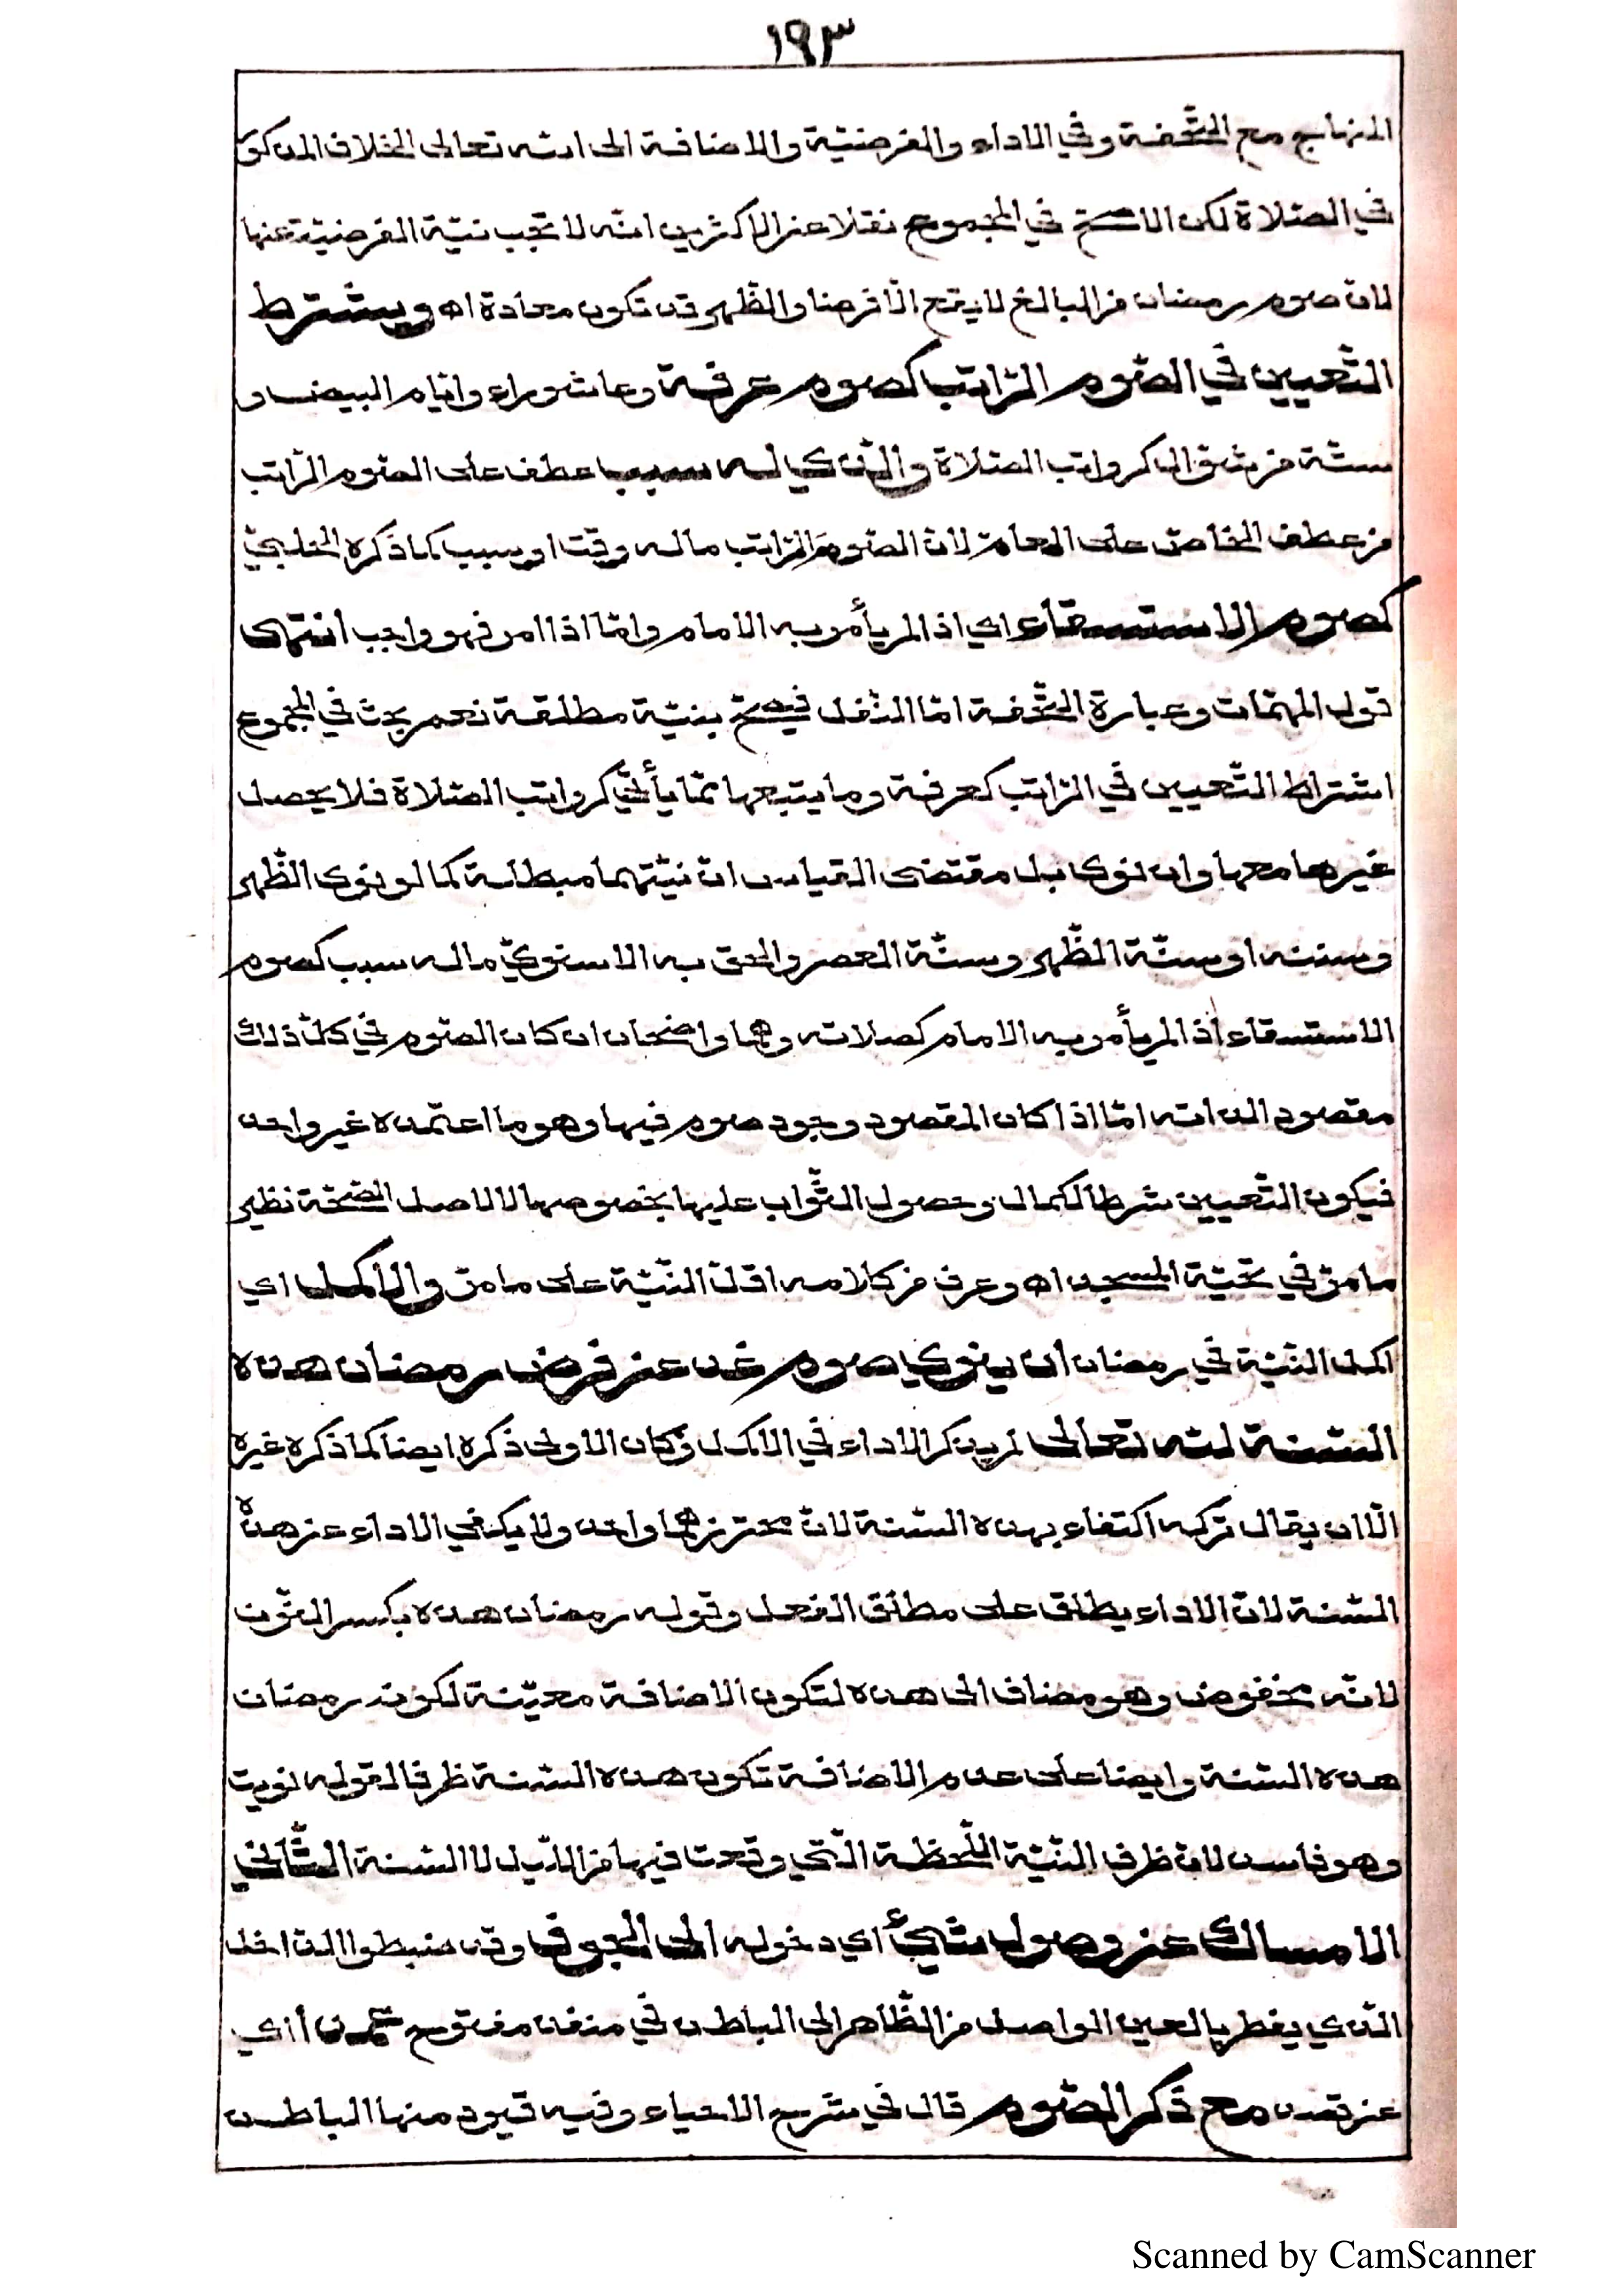 ١٩٣
المنهاج مع التّحفة وفي الاداء والفرضيّة والاضافة الى الله تعالى الخلاف المذكور
في الصّلاة لكن الاصحّ في المجموع نقلا عن الاكثرين انّه لا تجب نيّة الفرضيّة عنها
لانّ صوم رمضان من البالغ لا يقع الّا فرضا والظّهر قد تكون معادة اه ويشترط
التّعيين في الصّوم الرّاتب كصوم عرفة وعاشوراء وايّام البيض و
ستّة من شوّال كرواتب الصّلاة والّذي له سبب عطف على الصّوم الرّاتب
من عطف الخاصّ على العامّ لانّ الصّوم الرّاتب ماله وقت او سبب كما ذكره
كصوم الاستسقاء اي اذا لم يأمر به الامام وامّا اذا امر فهو واجب انتهى
قول المهمّات وعبارة التّحفة امّا النّفل فيصحّ بنيّة مطلقة نعم بحث في المجموع
اشتراط التّعيين في الرّاتب كعرفة وما يتبعها ممّا يأتي كرواتب الصّلاة فلا يحصل
غيرها معها وان نوى بل مقتضى القياس انّ نيّتهما مبطلة كما لو نوى الظّهر
وسنته او سنّة الظّهر وسنّة العصر والحق به الاسنويّ ماله سبب كصوم
الاستسقاء اذا لم يأمر به الامام كصلاته وهما واضحان ان كان الصّوم في كلّ ذلك
مقصود الذاته امّا اذا كان المقصود وجود صوم فيها وهو ما اعتمده غير واحد
فيكون التّعيين شرطا لكمال وحصول الثّواب عليها بخصوصها لا لاصل الصّحّة نظير
ما مرّ في تحيّة المسجد اه وعرف من كلامه اقلّ النّيّة على ما مرّ والاكمل اي
اكمل النّيّة في رمضان ان ينوي صوم غد عن فرض رمضان هذه
السّنة لله تعالى لم يذكر الاداء في الاكمل وكان الاولى ذكره ايضا كما ذكره غيره
الّا ان يقال تركه اكتفاء بهذه السّنة لانّ محترزهما واحد ولا يكفي الاداء عن هذه
السّنة لانّ الاداء يطلق على مطلق الفعل وقوله رمضان هذه بكسر النّون
لانّه مخفوض وهو مضاف الى هذه لتكون الاضافة معيّنة لكونه رمضان
هذه السّنة وايضا على عدم الاضافة تكون هذه السّنة ظرفا لقوله نويت
وهو فاسد لانّ ظرف النّيّة اللّحظة الّتي وقعت فيها من اللّيل لا السّنة الثّاني
الامساك عن وصول شيئ اي دخوله الى الجوف وقد ضبطوا الدّاخل
الّذي يفطر بالعين الواصل من الظّاهر الى الباطن في منفذ مفتوح عمدا اي
عن قصد مع ذكر الصّوم قال في شرح الاحياء وفيه قيود منها الباطن
Scanned by CamScanner